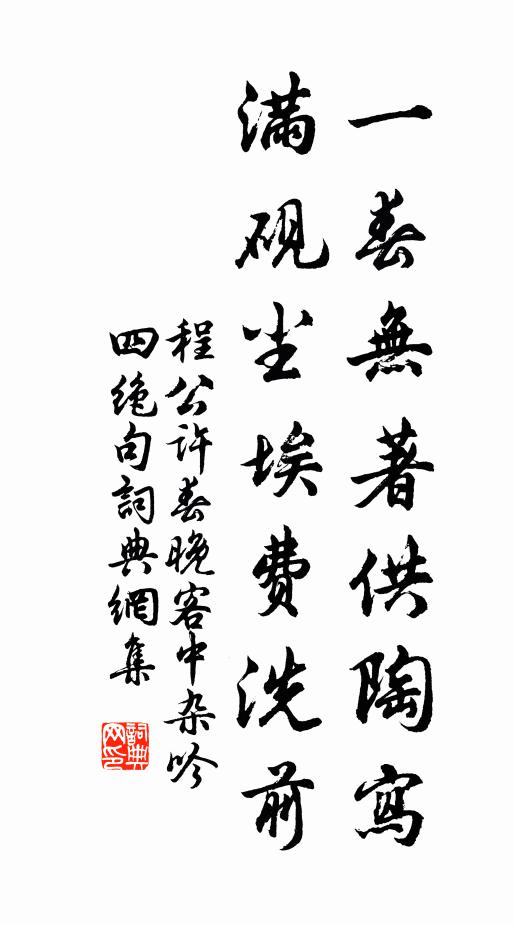 一春無著供陶寫
滿硯尘埃費洗前
程公許春晚客中杂吟
四绝句詞典網集
詞典网印